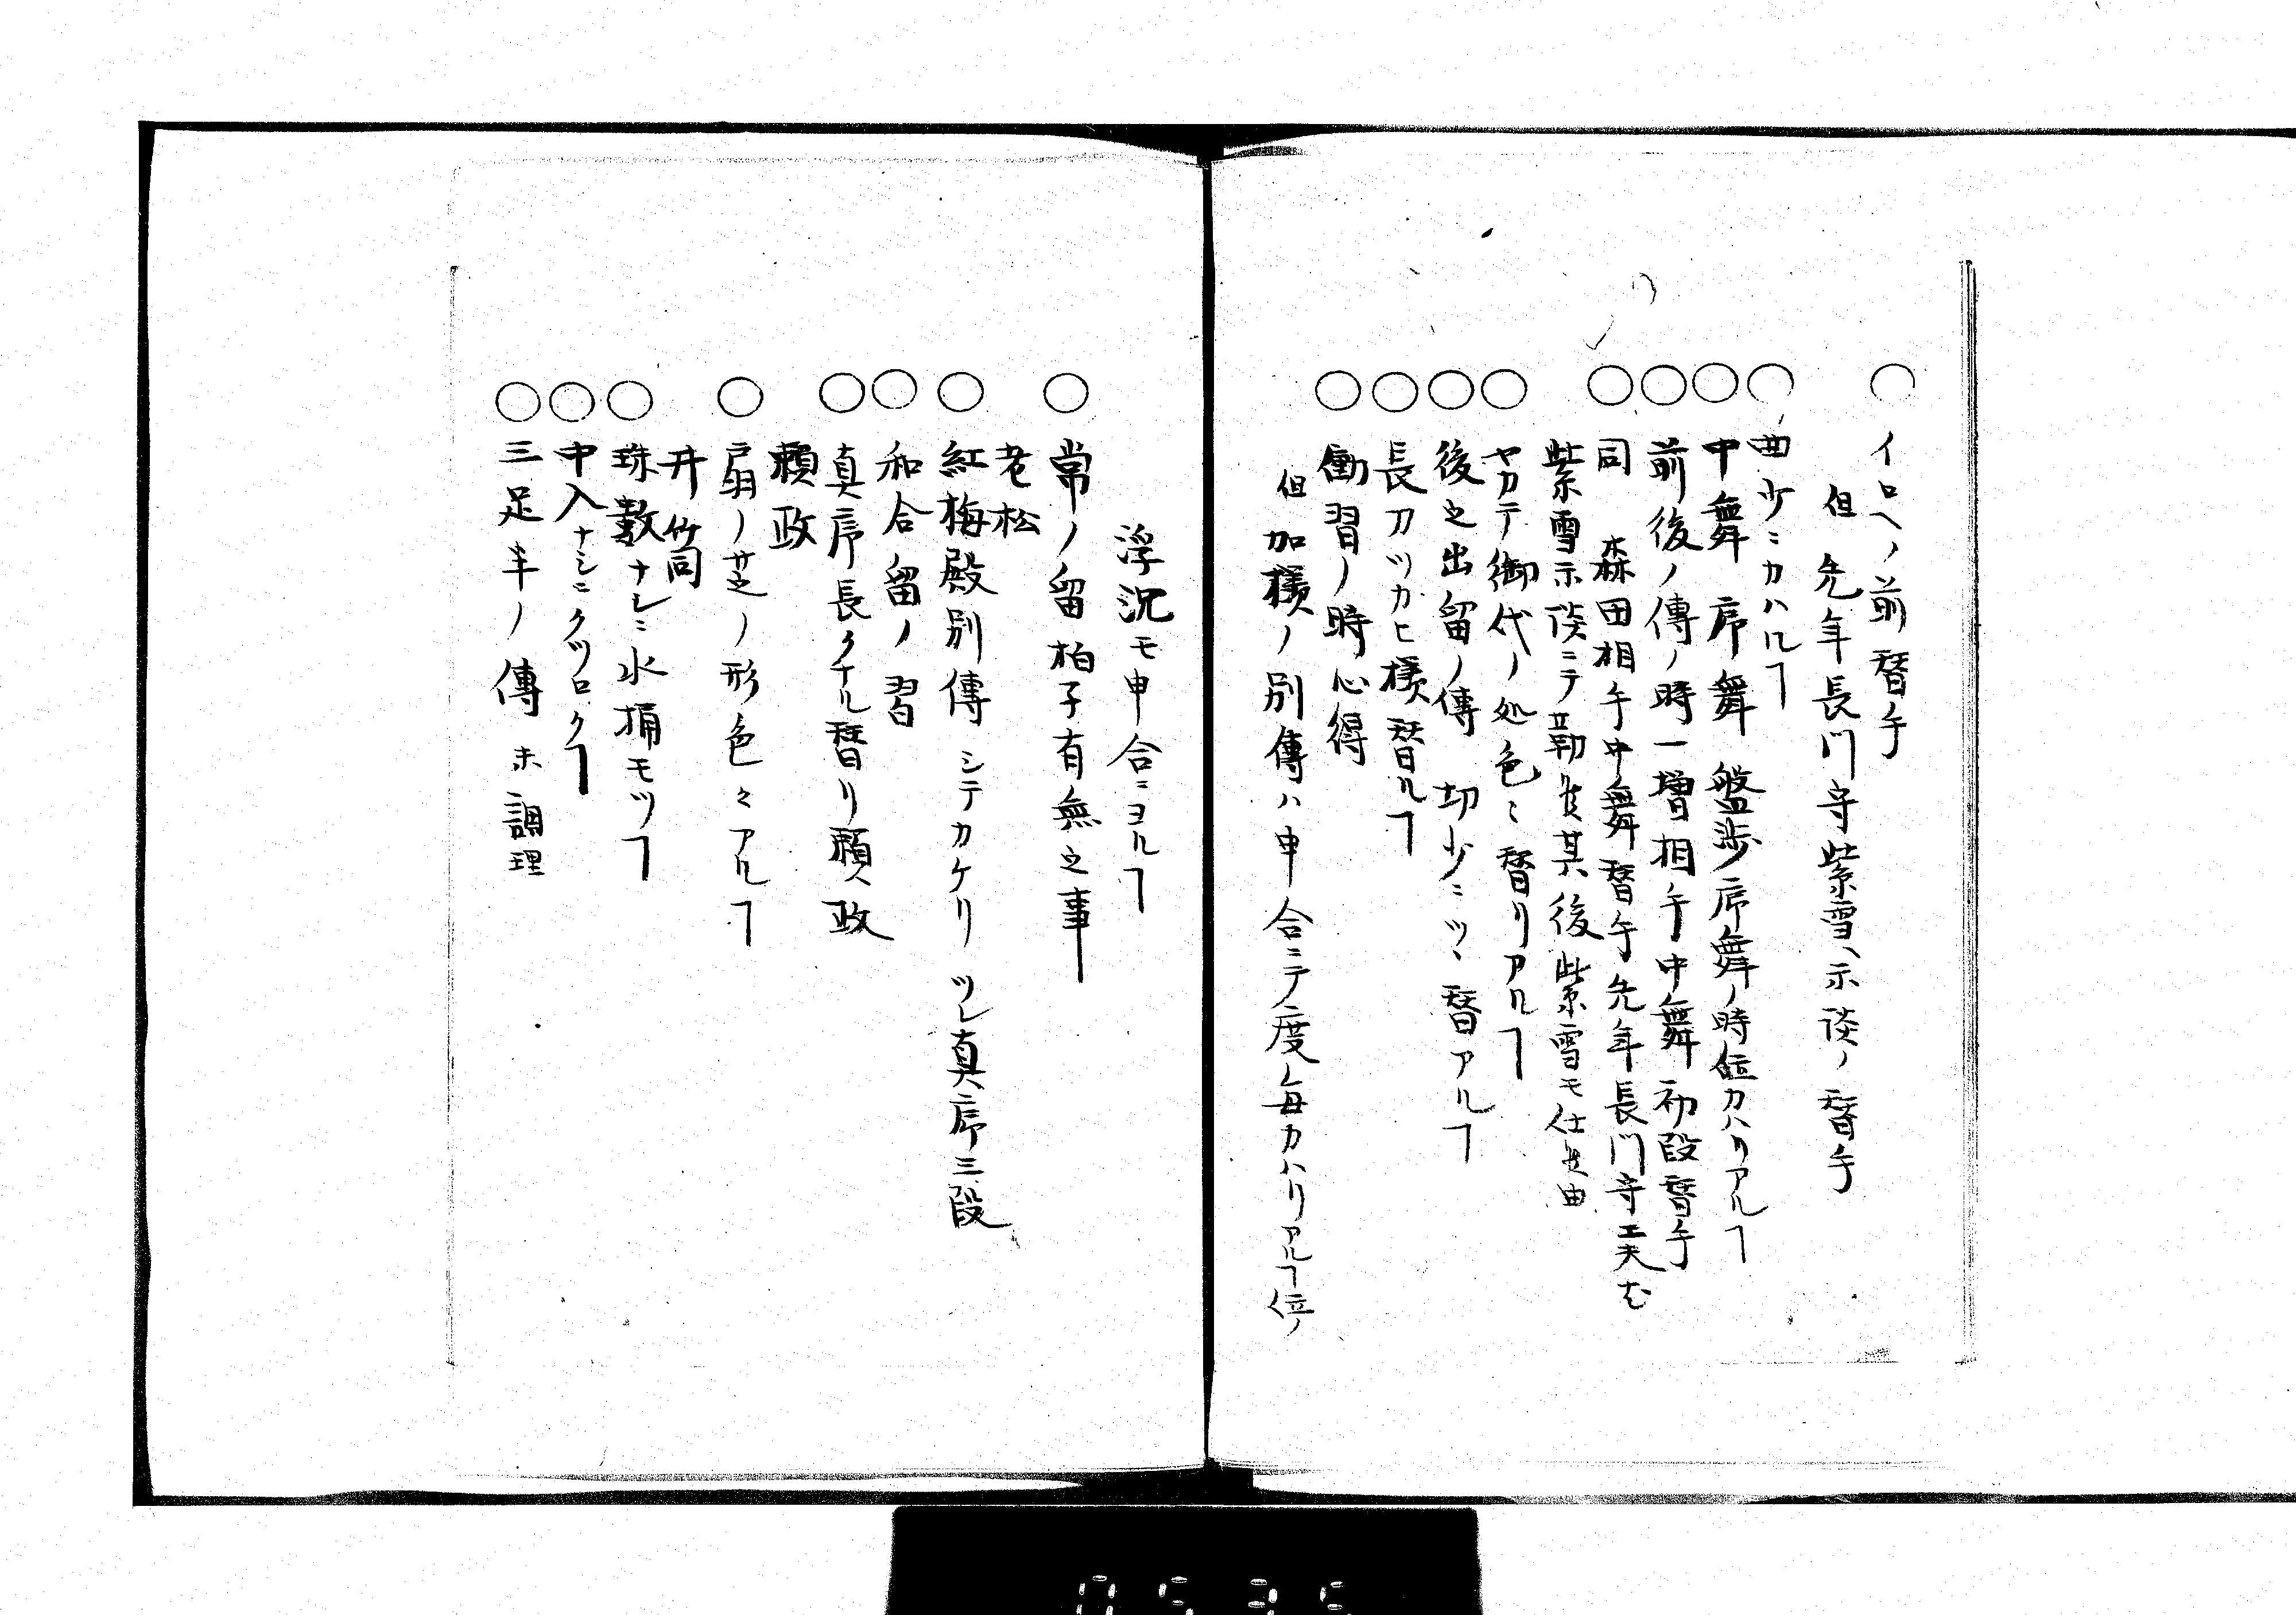 ○イロヘノ前替手
但先年長門守紫雪ヘ示談ノ替手
○曲少ニカハルヿ
○中舞序舞盤渉序舞ノ時位カハリアルヿ
○前後ノ傳ノ時一増相手中舞初段替手
○同 森田相手中舞替手先年長門守工夫
紫雪示談ニテ勤 其後紫雪モ仕 由
○ヤカテ御代ノ処色〻替リアルヿ
○後之出留ノ傳 切少ニツヽ替アルヿ
○長刀ツカヒ様替ルヿ
○働習ノ時心得
但加様ノ別傳ハ申合ニテ度毎カハリアルヿ位ノ
浮沉モ申合ニヨルヿ
○常ノ留拍子有無之事
老松
○紅梅殿別傳 シテカケリ ツレ真序三段
○和合留ノ習
○真序長クナル替リ頼政
頼政
○扇ノ芝ノ形色々アルヿ
井筒
○珠數ナシニ水桶モツヿ
○中入ナシニクツロクヿ
○三足半ノ傳 調理
0535